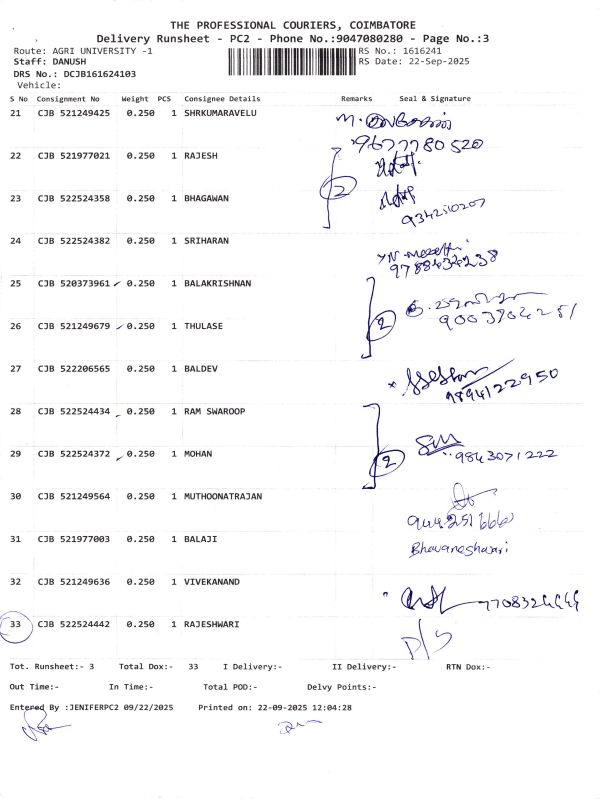 THE PROFESSIONAL COURIERS, COIMBATORE
Delivery Runsheet - PC2 - Phone No.:9047080280 - Page No.:3
Route: AGRI UNIVERSITY -1 RS No.: 1616241
Staff: DANUSH RS Date: 22-Sep-2025
DRS No.: DCJB161624103
Vehicle:
S No Consignment No Weight PCS Consignee Details Remarks Seal & Signature
21 CJB 521249425 0.250 1 SHRKUMARAVELU
9677780520
22 CJB 521977021 0.250 1 RAJESH
2
23 CJB 522524358 0.250 1 BHAGAWAN
9342510207
24 CJB 522524382 0.250 1 SRIHARAN
9788434238
25 CJB 520373961 0.250 1 BALAKRISHNAN
26 CJB 521249679 0.250 1 THULASE 2
27 CJB 522206565 0.250 1 BALDEV
9894122950
28 CJB 522524434 0.250 1 RAM SWAROOP
29 CJB 522524372 0.250 1 MOHAN 2 9843071222
30 CJB 521249564 0.250 1 MUTHOONATRAJAN
31 CJB 521977003 0.250 1 BALAJI
Bhavaneshwari
32 CJB 521249636 0.250 1 VIVEKANAND
33 CJB 522524442 0.250 1 RAJESHWARI
D/S
Tot. Runsheet:- 3 Total Dox:- 33 I Delivery:- II Delivery:- RTN Dox:-
Out Time:- In Time:- Total POD:- Delvy Points:-
Entered By :JENIFERPC2 09/22/2025 Printed on: 22-09-2025 12:04:28